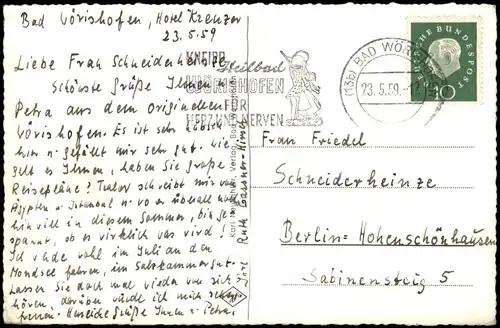 Bad Wörishofen, Hotel Kreuzer
23.5.59
Liebe Frau Schneiderheinze
Schönste Grüße Ihnen u.
Petra aus dem originellen
Wörishofen. Es ist sehr hübsch
hier u. gefällt mir sehr gut. Wie
geht es Ihnen, haben Sie große
Reisepläne? schreibt mir von
Ägypten u. Istanbul u. wo er überall noch
hin will in diesem Sommer, bin ge-
spannt, ob es wirklich was wird!
Ich würde wohl im Juli an den
Mondsee fahren, im Salzkammergut.
Lassen Sie doch mal wieder von sich
hören, darüber würde ich mich sehr
freuen. Herzliche Grüße Ihnen u. Petra,
Ihre
Ruth Gassner-Hirsch
KNEIPP Heilbad
WÖRISHOFEN
FÜR
HERZ UND NERVEN
(13b) BAD WÖRISHOFEN
23.5.59.-12
DEUTSCHE BUNDESPOST
10
Verlag, Bad Wörishofen
Frau Friedel
Schneiderheinze
Berlin-Hohenschönhausen
Sabinensteig 5